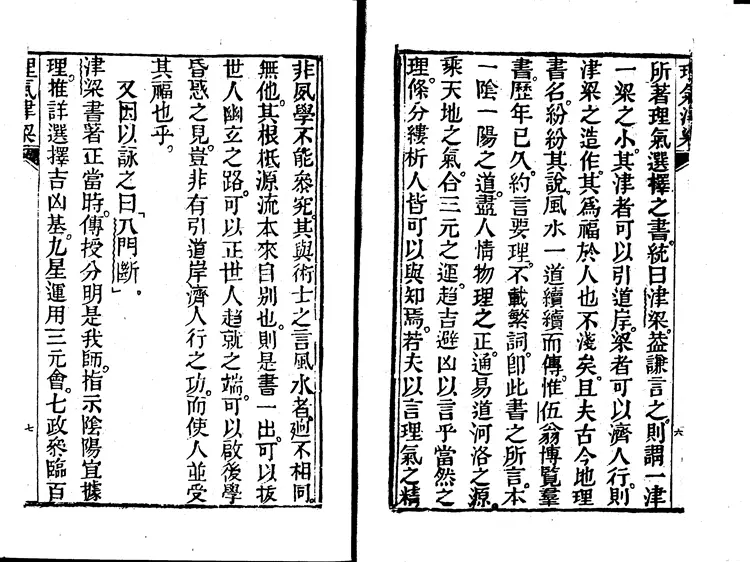 理氣津梁
所著理氣選擇之書。統曰津梁。葢謙言之。則謂一津
一梁之小。其津者可以引道岸。梁者可以濟人行。則
津梁之造作。其爲福於人也不淺矣。且夫古今地理
書名紛紛。其說風水一道。續續而傳。惟伍翁博覽羣
書。歷年已久。約言要理。不載繁詞。卽此書之所言。本
一陰一陽之道。盡人情物理之正。通易道河洛之源。
乘天地之氣。合三元之運。趨吉避凶。以言乎當然之
理。條分縷析。人皆可以與知焉。若夫以言理氣之精
六
非夙學不能叅究。其與術士之言風水者。迥不相同。
無他。其根柢源流。本來自别也。則是書一出。可以拔
世人幽玄之路。可以正世人趨就之端。可以啟後學
昏惑之見。豈非有引道岸濟人行之功。而使人並受
其福也乎。
又因以詠之曰「八門斷」。
津梁書著正當時。傳授分明是我師。指示陰陽宜據
理。推詳選擇吉凶基。九星運用三元會。七政叅臨百
理氣津梁
七